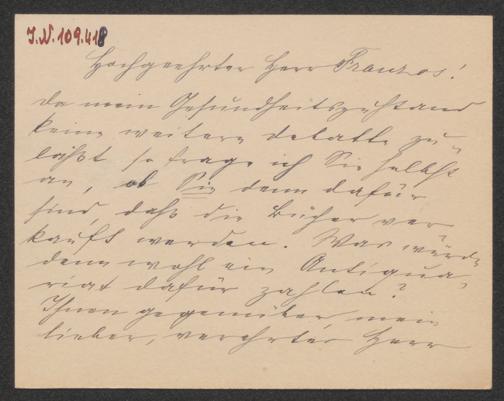 J.N. 109.418
Hochgeehrter Herr Franzos!
da mein Gesundheitszustand
keine weitere Debatte zu=
läßt, so frage ich Sie selbst
an, ob Sie denn dafür
sind, daß die Bücher ver
kauft werden. Was würde
denn wohl ein Antiqua=
riat dafür zahlen?
Ihnen gegenüber, mein
lieber, verehrter Herr